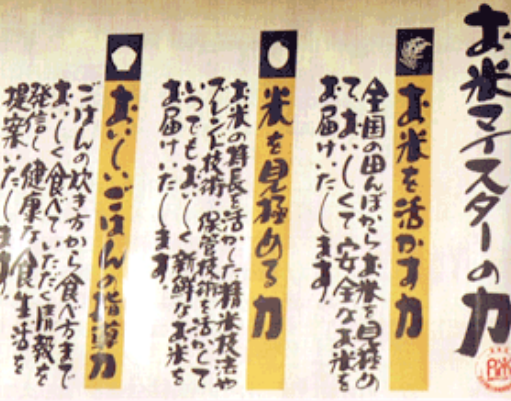 お米マイスターの力
お米を活かす力
全国の田んぼからお米を見極め
て、おいしくて安全なお米を
お届けいたします。
米を見極める力
お米の特長を活かした精米技法や
ブレンド技術・保管技術を活かして
いつでもおいしく新鮮なお米を
お届けいたします。
おいしいごはんの指導力
ごはんの炊き方から食べ方まで
おいしく食べていただく情報を
発信し、健康な食生活を
提案いたします。